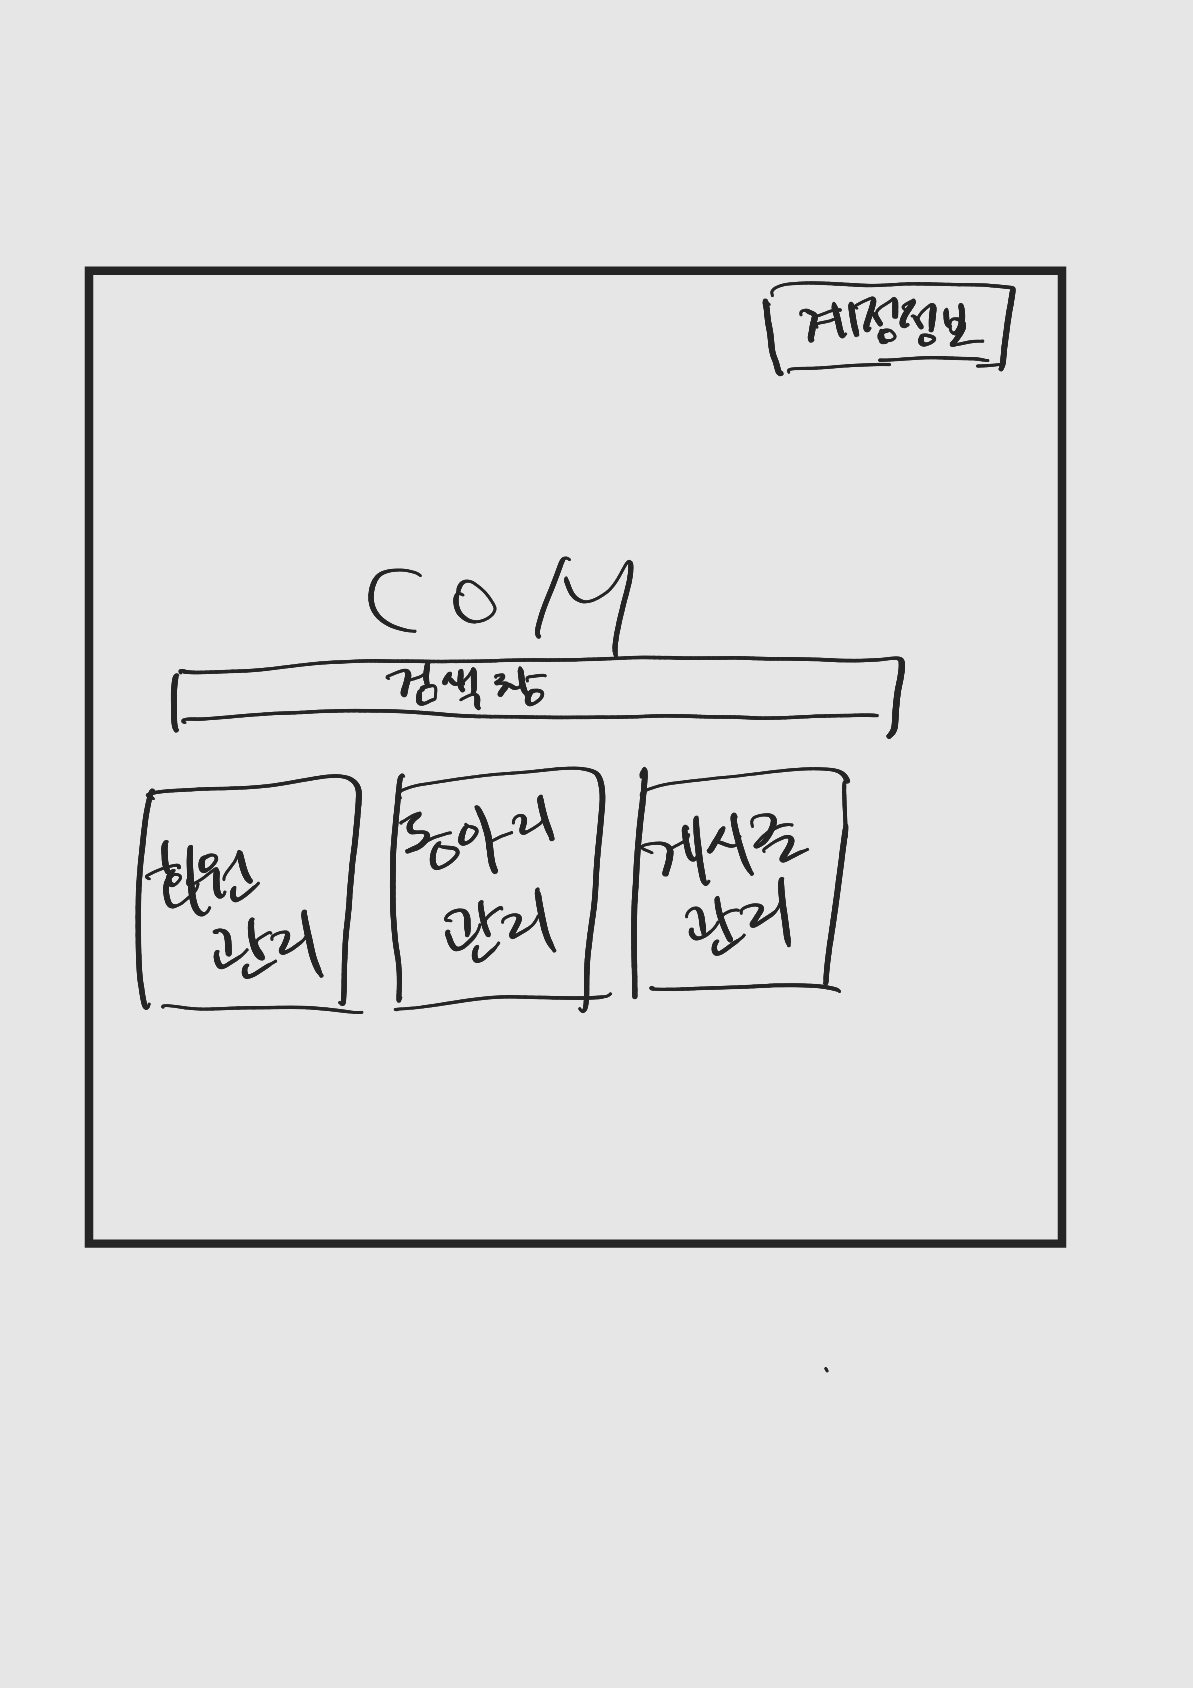 계정정보
COM
검색창
회원
관리
동아리
관리
게시글
관리